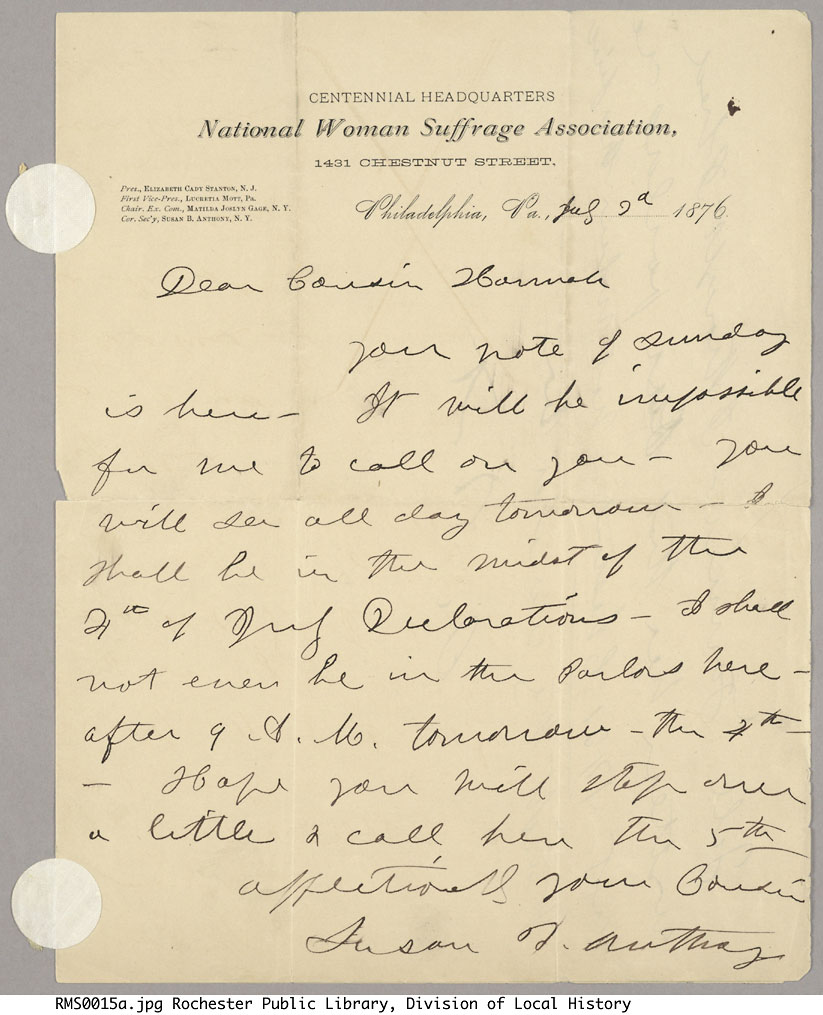 CENTENNIAL HEADQUARTERS
National Woman Suffrage Association,
1431 CHESTNUT STREET.
Pres., ELIZABETH CADY STANTON, N. J.
First Vice-Pres., LUCRETIA MOTT, PA.
Chair. Ex. Com., MATILDA JOSLYN GAGE, N. Y.
Cor. Sec'y, SUSAN B. ANTHONY, N. Y.
Philadelphia, Pa., July 3d 1876
Dear Cousin Hannah
Your note of Sunday
is here – It will be impossible
for me to call on you – You
will see all day tomorrow – I
shall be in the midst of the
4th of July Declarations – I shall
not even be in the Parlors here –
after 9 A. M. tomorrow – the 4th –
– Hope you will stop over
a little & call here the 5th
affectionately your Cousin
Susan B. Anthony
RMS0015a.jpg Rochester Public Library, Division of Local History